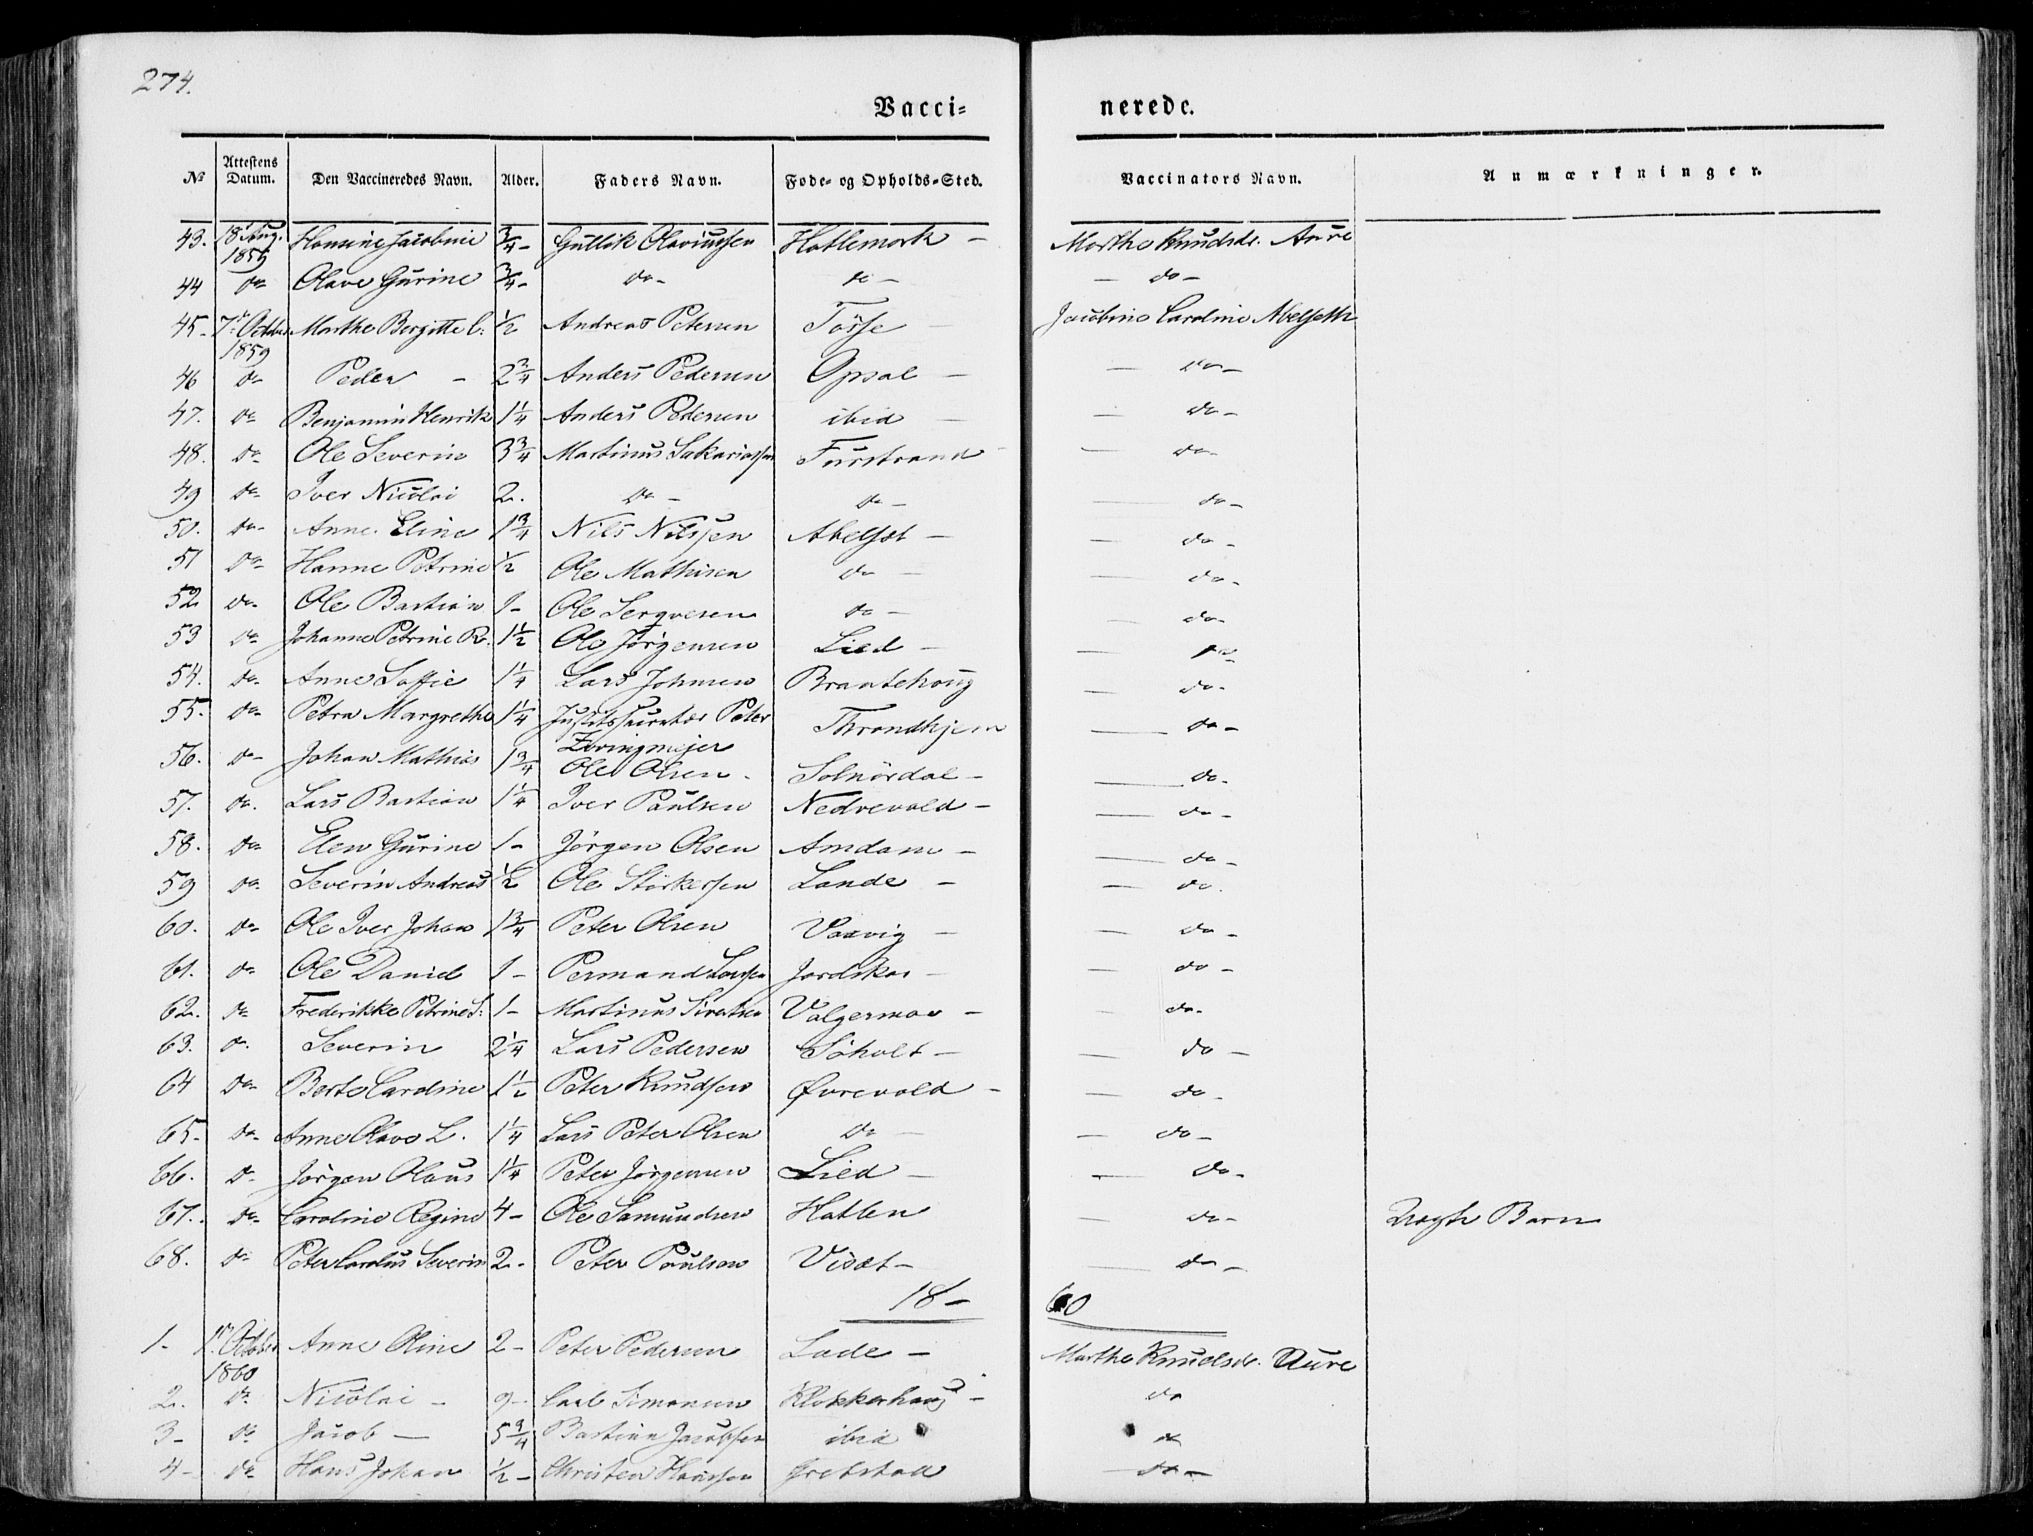 274.
Vacci= nerede.
No Attestens Datum. Den Vaccineredes Navn. Alder. Faders Navn. Føde= og Opholds=Sted. Vaccinators Navn. Anmærkninger.
43. 18 Aug. 1859 Hansine Jacobine 3/4 - Gullik Olaviussen Hatlemark - Marthe Knudsdr. Aure
44 do Olave Gurine 3/4 - do - do - - do -
45 - 7de October 1859 Marthe Bergitte C. 1/2 Andreas Petersen Tørse Jacobine Caroline Abelseth
46 do Peder - 2 3/4 Anders Pedersen Opsal - - do -
47. do Benjamin Henrik 1 1/4 Anders Pedersen ibid - - do -
48. do Ole Severin 3 3/4 Martinus Sakariassen Furstrand - - do -
49 do Iver Nicolai 2. do - do - - do -
50. do - Anne Eline 1 3/4 Nils Nilssen Abelset - - do -
51 do Hanne Petrine 1/2 Ole Mathisen do - - do -
52 do - Ole Bastian 1 - Ole Sergvesen do - - do -
53 do Johanne Petrine R. 1 1/2 Ole Jørgensen Lied - - do -
54. do - Anne Soffie 1 1/4 Lars Johnsen Brautehoug - do -
55. do - Petra Margrethe 1 1/4 Justitssecretær Peter Throndhjem - do -
Zwingmejer
56. do - Johan Mathias 1 3/4 Ole Olsen - Solnørdal - - do -
57. do. Lars Bastian 1 1/4 Iver Paulsen Nedrevold - - do -
58. do Elen Gurine 1 - Jørgen Olsen Amdam - - do -
59 do Severin Andreas 1/2 Ole Størkersen Lande - - do.
60. do Ole Iver Johan 1 3/4 Peter Olsen Vaxvig - - do -
61. do Ole Daniel 1 - Permand Larsen Jordskar - - do -
62. do Frederikke Petrine S. 1 - Martinus Sivertsen Valgermoe - - do -
63. do Severin 2 1/4 Lars Pedersen Søholt - - do -
64 do - Berte Caroline 1 1/2 Peter Knudsen Øvrevold - - do -
65 - do - Anne Olave L. 1 1/4 Lars Peter Olsen do - - do -
66. do Jørgen Olaus 1 1/4 Peter Jørgensen Lied - - do -
67. do - Caroline Regine 4 - Ole Samundsen Hatlen - do - Uægte Barn
68. do Peter Carolus Severin 2 - Peter Paulsen Visset - - do -
18 - 60
1 - October 1860 Anne Oline 2 - Peter Pedersen Lade - Marthe Knudsdr. Aure
2. do Nicolai - 9 - Carl Simonsen Klokkerhoug - do
3 - do Jacob - 5 3/4 Bastian Jacobsen ibid do
4 - do Hans Johan 1/2 - Christen Hanssen Grebstad - do -